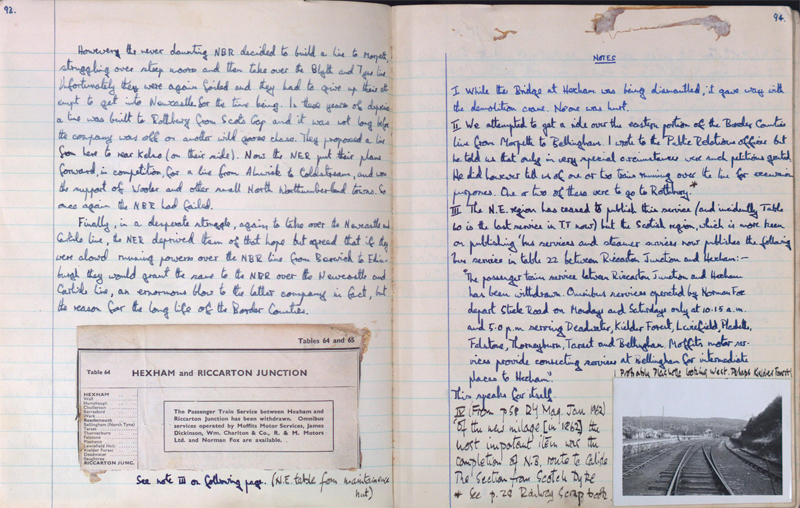 92.
However, the never daunting NBR decided to build a line to Morpeth,
struggling over steep moors and then take over the Blyth and Tyne line.
Unfortunately they were again foiled and they had to give up their att-
empt to get into Newcastle for the time being. In these years of depression
a line was built to Rothbury from Scots Gap and it was not long before
the company was off on another wild goose chase. They proposed a line
from here to near Kelso (on their side). Now the NER put their plans
forward, in competition, for a line from Alnwick to Coldstream, and won
the support of Wooler and other small North Northumberland towns. So
once again the NBR had failed.
Finally, in a desperate struggle, again to take over the Newcastle and
Carlisle line, the NER deprived them of that hope but agreed that if they
were alowd running powers over the NBR line from Berwick to Edin-
burgh they would grant the same to the NBR over the Newcastle and
Carlisle line, an enormous blow to the latter company in fact, but
the reason for the long life of the Border Counties.
Tables 64 and 65
Table 64 HEXHAM and RICCARTON JUNCTION
HEXHAM
Wall
Humshaugh
Chollerton
Barrasford
Wark
Reedsmouth
Bellingham (North Tyne)
Tarset
Thorneyburn
Falstone
Plashetts
Lewiefield Halt
Kielder Forest
Deadwater
Saughtree
RICCARTON JUNC.
The Passenger Train Service between Hexham and
Riccarton Junction has been withdrawn. Omnibus
services operated by Moffits Motor Services, James
Dickinson, Wm. Charlton & Co., R. & M. Motors
Ltd. and Norman Fox are available.
See note III on following page. (N.E. table from maintainence
hut)
94.
NOTES
I While the Bridge at Hexham was being dismantled, it gave way with
the demolition crane. No one was hurt.
II We attempted to get a ride over the eastern portion of the Border Counties
line from Morpeth to Bellingham. I wrote to the Public Relations officer but
he told us that only in very special circumstances were such petitions granted.
He did however tell us of one or two train running over the line for excursion
purposes. One or two of these were to go to Rothbury.*
III The N.E. region has ceased to publish this service (and incidently Table
60 is the last service in TT now) but the Scotish region, which is more keen
on publishing 'bus services and steamer services now publishes the following
'bus services in table 22 between Riccarton Junction and Hexham:-
"The passenger train service between Riccarton Junction and Hexham
has been withdrawn. Omnibus services operated by Norman Fox
depart Steele Road on Mondays and Saturdays only at 10.15 a.m.
and 5.0 p.m. serving Deadwater, Kielder Forest, Lewiefield, Plashetts,
Falstone, Thorneyburn, Tarset and Bellingham. Moffits motor ser-
vices provide connecting services at Bellingham for intermediate
places to Hexham".
This speaks for itself.
Probably Plashetts looking West. Perhaps Kielder Forest!
IV (From p 58 Rly Mag. Jan 1962)
'Of the new milage [in 1862] the
most important item was the
completion of N.B. route to Carlisle
The Section from Scotch Dyke
* See p. 28 Railway Scrap book